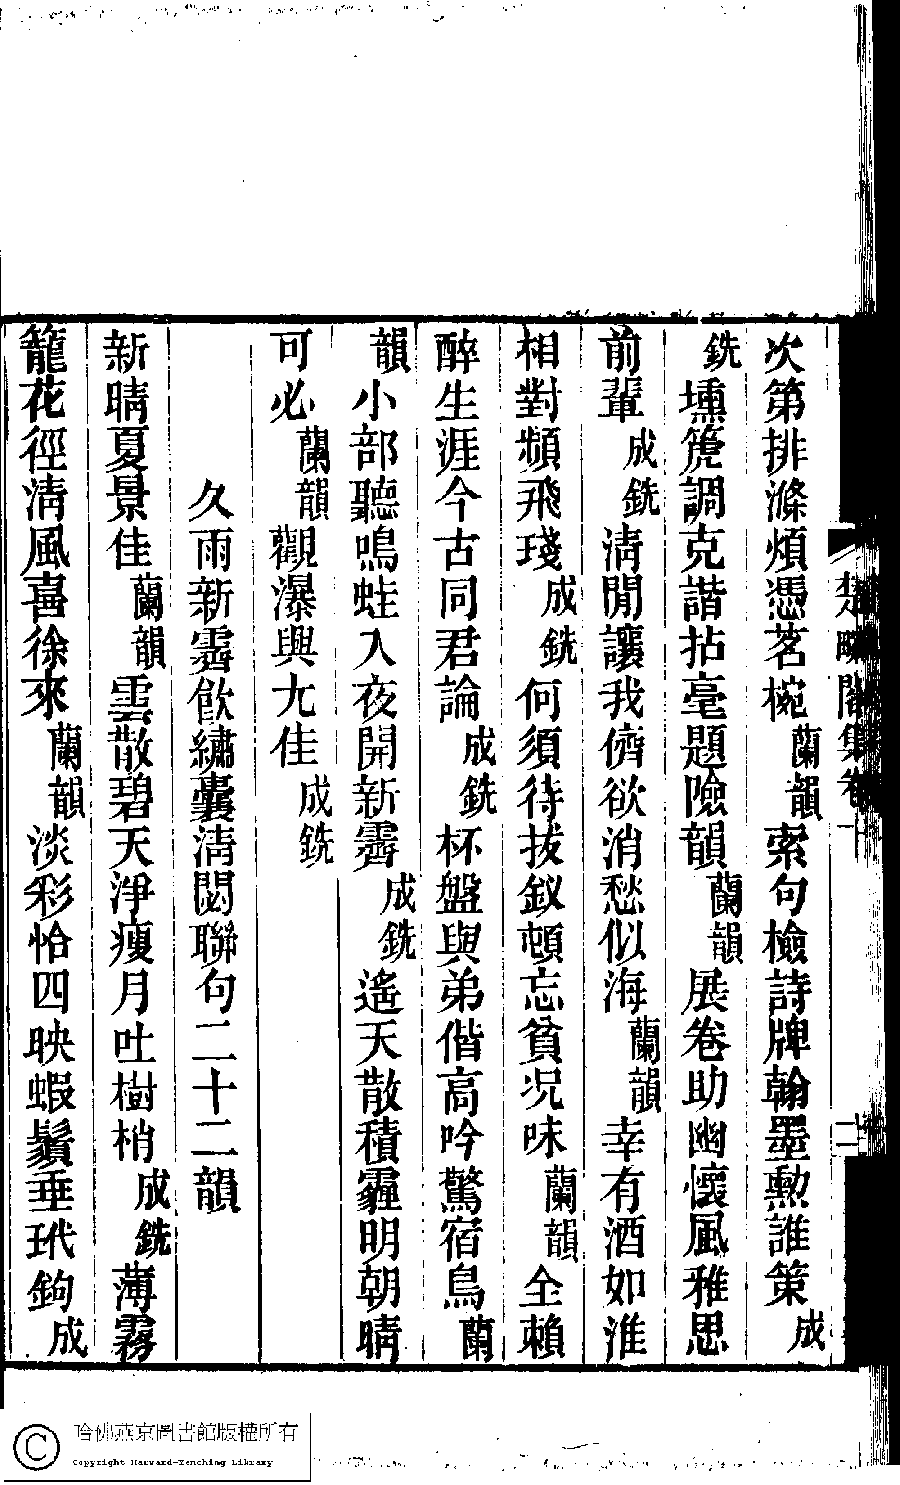 次第排滌煩憑茗椀蘭韻索句檢詩牌翰墨勲誰策成
銑壎篪調克諧拈毫題險韻蘭韻展卷助幽懷風雅思
前輩成銑淸閒讓我儕欲消愁似海蘭韻幸有酒如淮
相對頻飛琖成銑何須待拔釵頓忘貧况味蘭韻全賴
醉生涯今古同君論成銑杯盤與弟偕高吟驚宿鳥蘭
韻小部聽鳴蛙入夜開新霽成銑遙天散積霾明朝晴
可必蘭韻觀瀑與尤佳成銑
久雨新霽飮繡囊淸閟聯句二十二韻
新晴夏景佳蘭韻雲散碧天淨瘦月吐樹梢成銑薄霧
籠花徑淸風喜徐來蘭韻淡彩恰四映蝦鬚垂玳鉤成
楚畹閣集卷十
二
哈佛燕京圖書館版權所有
Copyright Harvard-Yenching Library